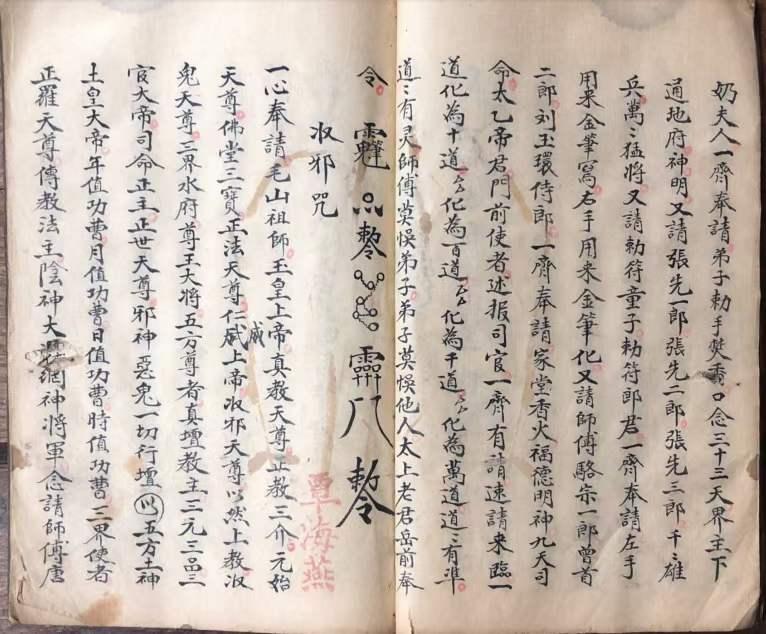 奶夫人一齊奉請弟子勅手焚香口念三十三天界主下
通地府神明又請張先一郎張先二郎張先三郎千〻雄
兵萬〻猛將又請勅符童子勅符郎君一齊奉請左手
用来金筆寫右手用来金筆化又請師傅駱宗一郎曾首
二郎刘玉環侍郎一齊奉請家堂香火福德明神九天司
命太乙帝君門前使者述报司官一齊有請速請来臨一
道化為十道〻化為百道〻化為千道〻化為萬道道〻有準
道〻有灵師傅莫悮弟子弟子莫悮他人太上老君岳前奉
令
收邪咒
一心奉請毛山祖師王皇上帝真教天尊正教三介元始
天尊佛堂三寶正法天尊仁威上帝收邪天尊以然上教收
鬼天尊三界水府尊王大將五方尊者真壇教主三元三品三
官大帝司命正主正世天尊邪神惡鬼一切行壇以五方土神
土皇大帝年值功曹月值功曹日值功曹時值功曹三界使者
正羅天尊傳教法主陰神大將神將軍念請師傅唐
覃海燕